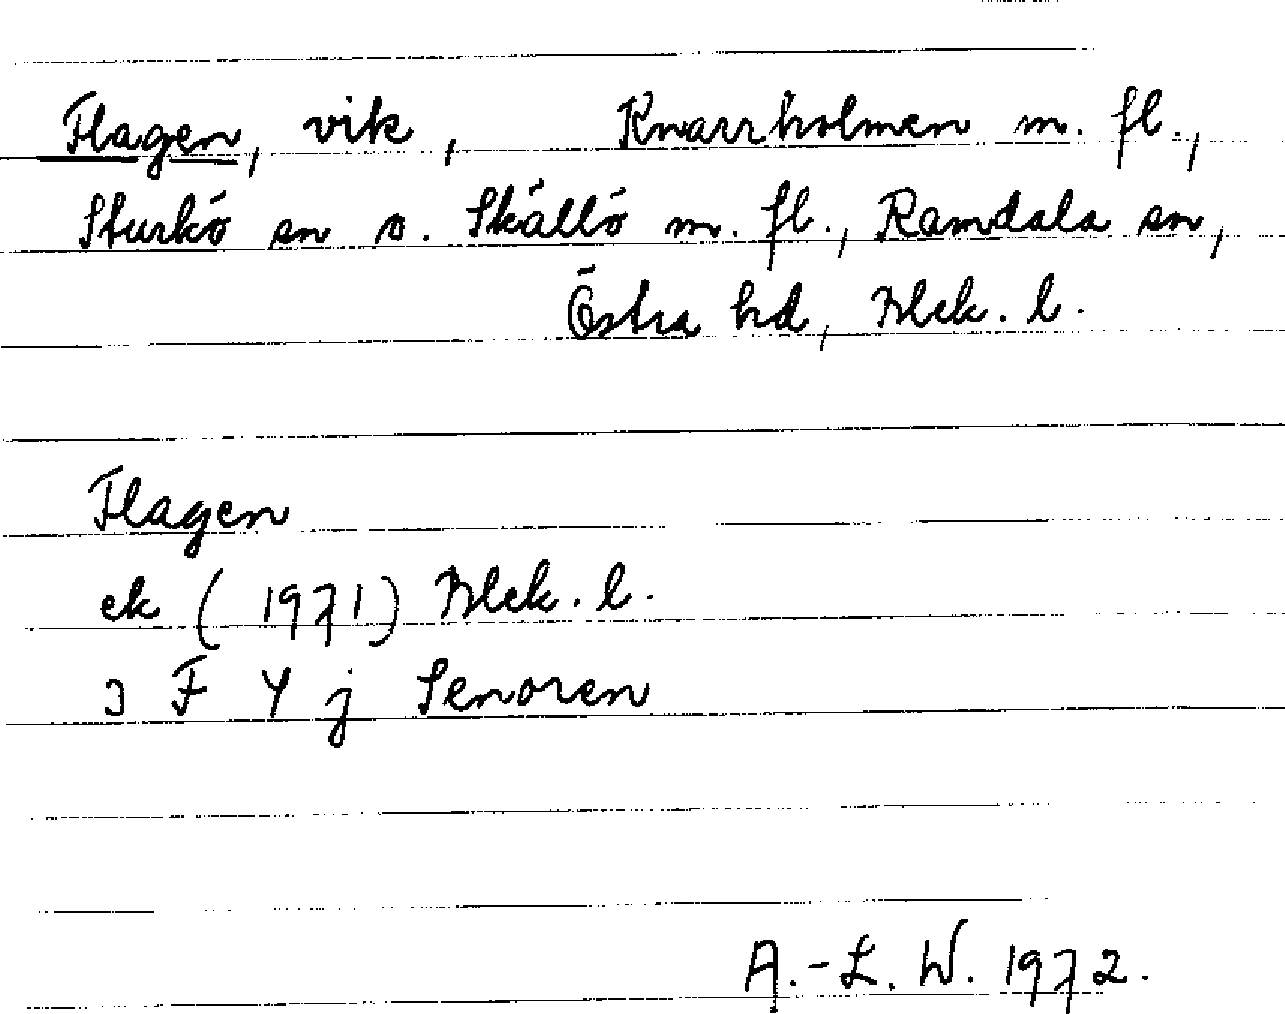 Flagen, vik, Knarrholmen m. fl.,
Sturkö sn o. Skällö m. fl., Ramdala sn,
Östra hd, Blek. l.
Flagen
ek (1971) Blek. l.
3 F Y j Senoren
A.-L. W. 1972.